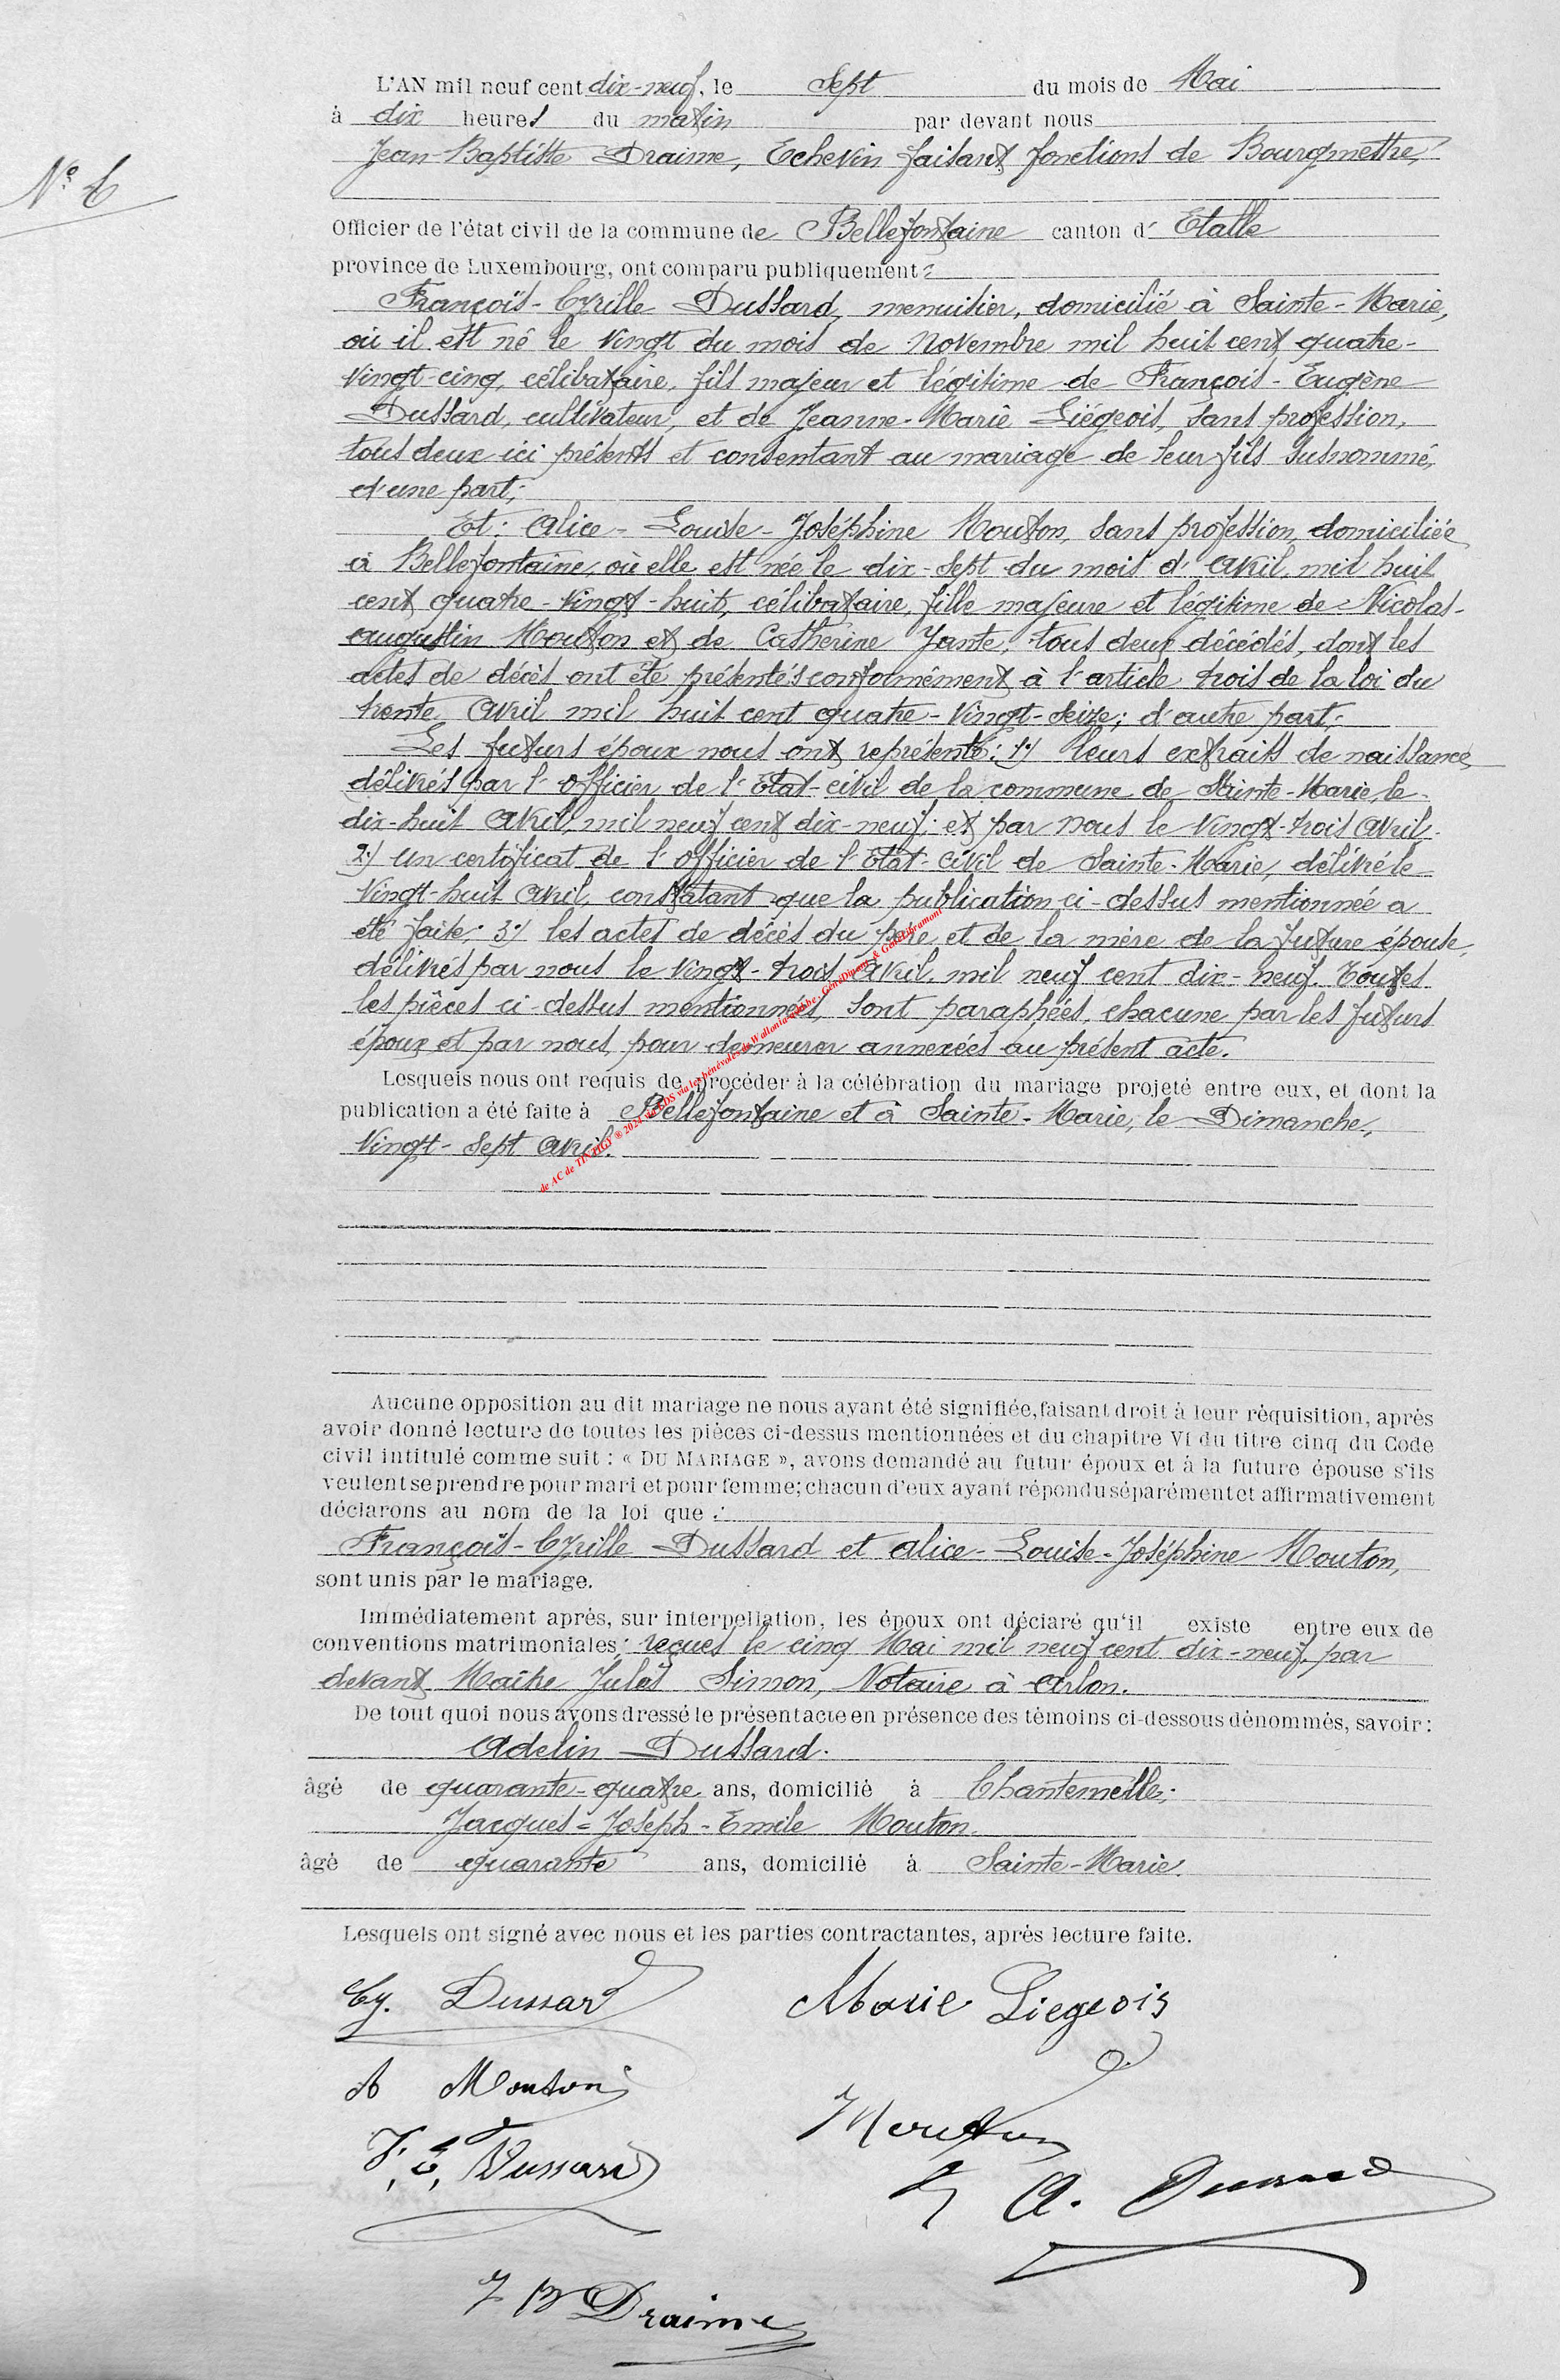 L'AN mil neuf cent dix-neuf, le Sept du mois de Mai
à dix heures du matin par devant nous
Jean-Baptiste Draime, Echevin faisant fonctions de Bourgmestre,
N° 6
Officier de l'état civil de la commune de Bellefontaine canton d' Etalle
province de Luxembourg, ont comparu publiquement :
François-Cyrille Dussard, menuisier, domicilié à Sainte-Marie,
où il est né le vingt du mois de Novembre mil huit cent quatre-
vingt-cinq, célibataire, fils majeur et légitime de François-Eugène
Dussard, cultivateur, et de Jeanne-Marie Liégeois, sans profession,
tous deux ici présents et consentant au mariage de leur fils susnommé,
d'une part;
Et: Alice-Louise-Joséphine Mouton, sans profession, domiciliée
à Bellefontaine, où elle est née le dix-sept du mois d'Avril, mil huit
cent quatre-vingt-huit, célibataire, fille majeure et légitime de Nicolas-
Augustin Mouton et de Catherine Jante, tous deux décédés, dont les
actes de décès ont été présentés conformément à l'article trois de la loi du
trente Avril mil huit cent quatre-vingt-seize; d'autre part;
Les futurs époux nous ont représenté: 1°/ leurs extraits de naissance,
délivrés par l'officier de l'Etat-civil de la commune de Sainte-Marie, le
dix-huit Avril, mil neuf cent dix-neuf; et par nous le vingt-trois Avril.
2°/ un certificat de l'officier de l'Etat-civil de Sainte-Marie, délivré le
vingt-huit Avril, constatant que la publication ci-dessus mentionnée a
été faite; 3°/ les actes de décès du père et de la mère de la future épouse,
délivrés par nous le vingt-trois Avril, mil neuf cent dix-neuf. Toutes
les pièces ci-dessus mentionnées, sont paraphées, chacune par les futurs
époux et par nous, pour demeurer annexées au présent acte.
Lesquels nous ont requis de procéder à la célébration du mariage projeté entre eux, et dont la
publication a été faite à Bellefontaine et à Sainte-Marie, le Dimanche,
Vingt-sept Avril.
Aucune opposition au dit mariage ne nous ayant été signifiée, faisant droit à leur réquisition, après
avoir donné lecture de toutes les pièces ci-dessus mentionnées et du chapitre VI du titre cinq du Code
civil intitulé comme suit : « DU MARIAGE », avons demandé au futur époux et à la future épouse s'ils
veulent se prendre pour mari et pour femme; chacun d'eux ayant répondu séparément et affirmativement
déclarons au nom de la loi que :
François-Cyrille Dussard et Alice-Louise-Joséphine Mouton,
sont unis par le mariage.
Immédiatement après, sur interpellation, les époux ont déclaré qu'il existe entre eux de
conventions matrimoniales; reçues le cinq Mai mil neuf cent dix-neuf, par
devant Maître Jules Simon, Notaire à Arlon.
De tout quoi nous avons dressé le présent acte en présence des témoins ci-dessous dénommés, savoir :
Adelin Dussard.
âgé de quarante-quatre ans, domicilié à Chantemelle;
Jacques-Joseph-Emile Mouton.
âgé de quarante ans, domicilié à Sainte-Marie.
Lesquels ont signé avec nous et les parties contractantes, après lecture faite.
Cy. Dussard
Marie Liegeois
A Mouton
Mouton
F. E. Dussard
A. Dussard
J B Draime